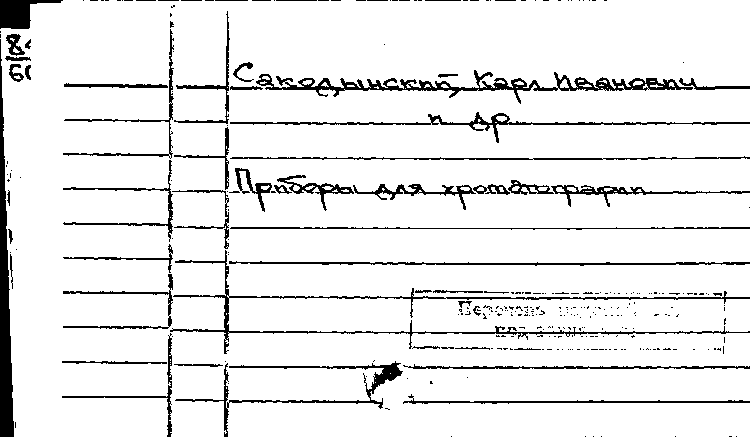 84
Сакодынский, Карл Иванович
и др
Приборы для хроматографии
Перечень
под